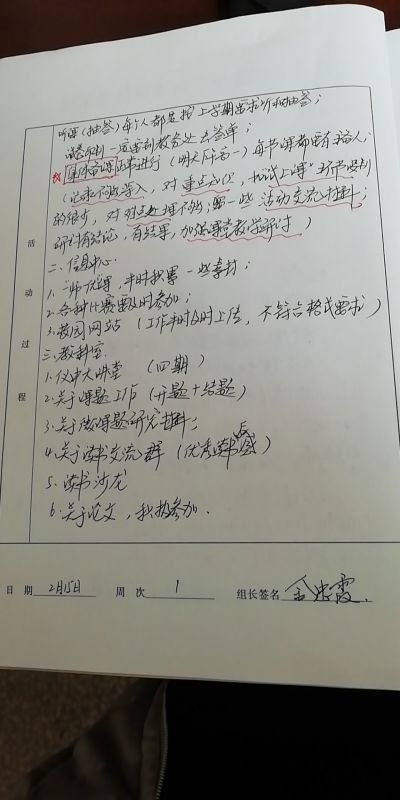 听课(抽签)每个人都是按上学期要求听和抽签;
试卷印刷一定要到教务处去签单;
集体备课正常进行(明天下午高一)每节课都要有主备人,
(记录不够深入,对重点知识,"试上课"环节做到
的很少,对处理不够;留一些活动交流材料;
研讨有结论,有结果,加强课堂教学研讨)
活动过程
二、信息中心.
1.一师一优课,平时积累一些素材;
2.各种比赛要及时参加;
3.校园网站(工作平时及时上传,不符合格式要求)
三.教科室.
1.仪中大讲堂(四期)
2.关于课题工作(开题+结题)
3.关于微课题研究材料;
4.关于读书交流群(优秀读书反感)
5.读书沙龙
6.关于论文,积极参加.
日期 2月15日 周次 1 组长签名 霞.